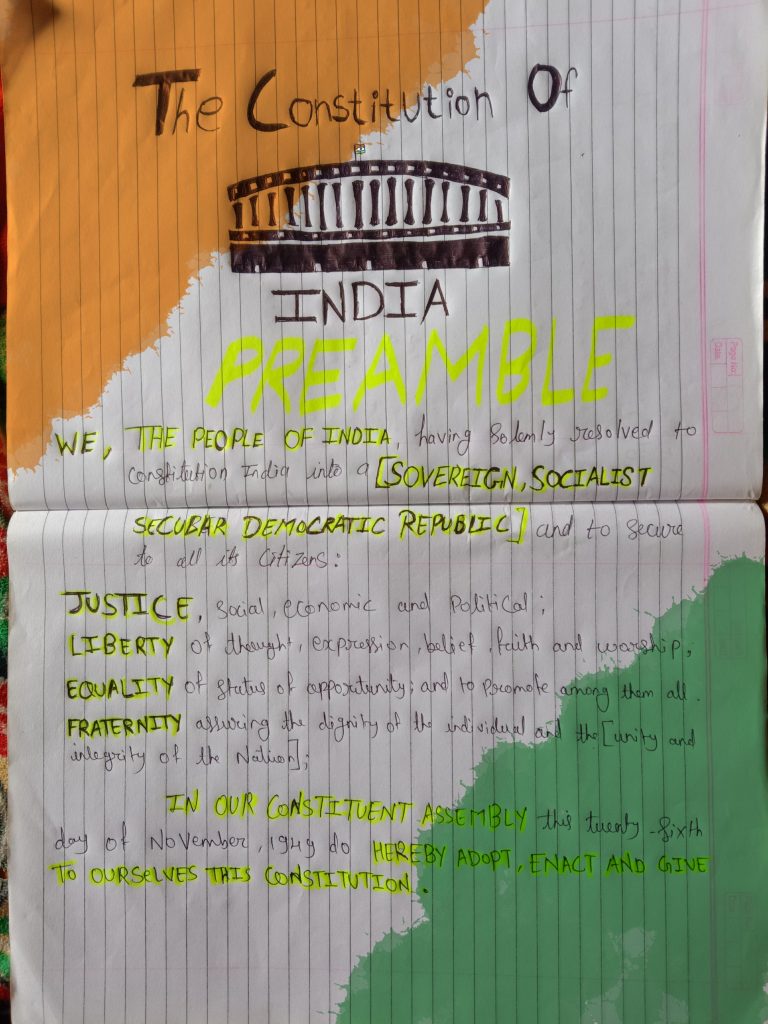 The Constitution Of
INDIA
PREAMBLE
WE, THE PEOPLE OF INDIA, having Solemly resolved to
constitution India into a [SOVEREIGN, SOCIALIST
SECUBAR DEMOCRATIC REPUBLIC] and to secure
to all its Citizens:
JUSTICE, social, economic and Political;
LIBERTY of thought, expression, belief, faith and worship;
EQUALITY of status of opportunity; and to promote among them all.
FRATERNITY assuring the dignity of the individual and the [unity and
integrity of the Nation];
IN OUR CONSTITUENT ASSEMBLY this twenty-sixth
day of November, 1949 do HEREBY ADOPT, ENACT AND GIVE
TO OURSELVES THIS CONSTITUTION.
Page No.
Date